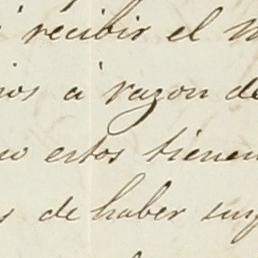 á recibir el
á razon de
estos tienen
de haber